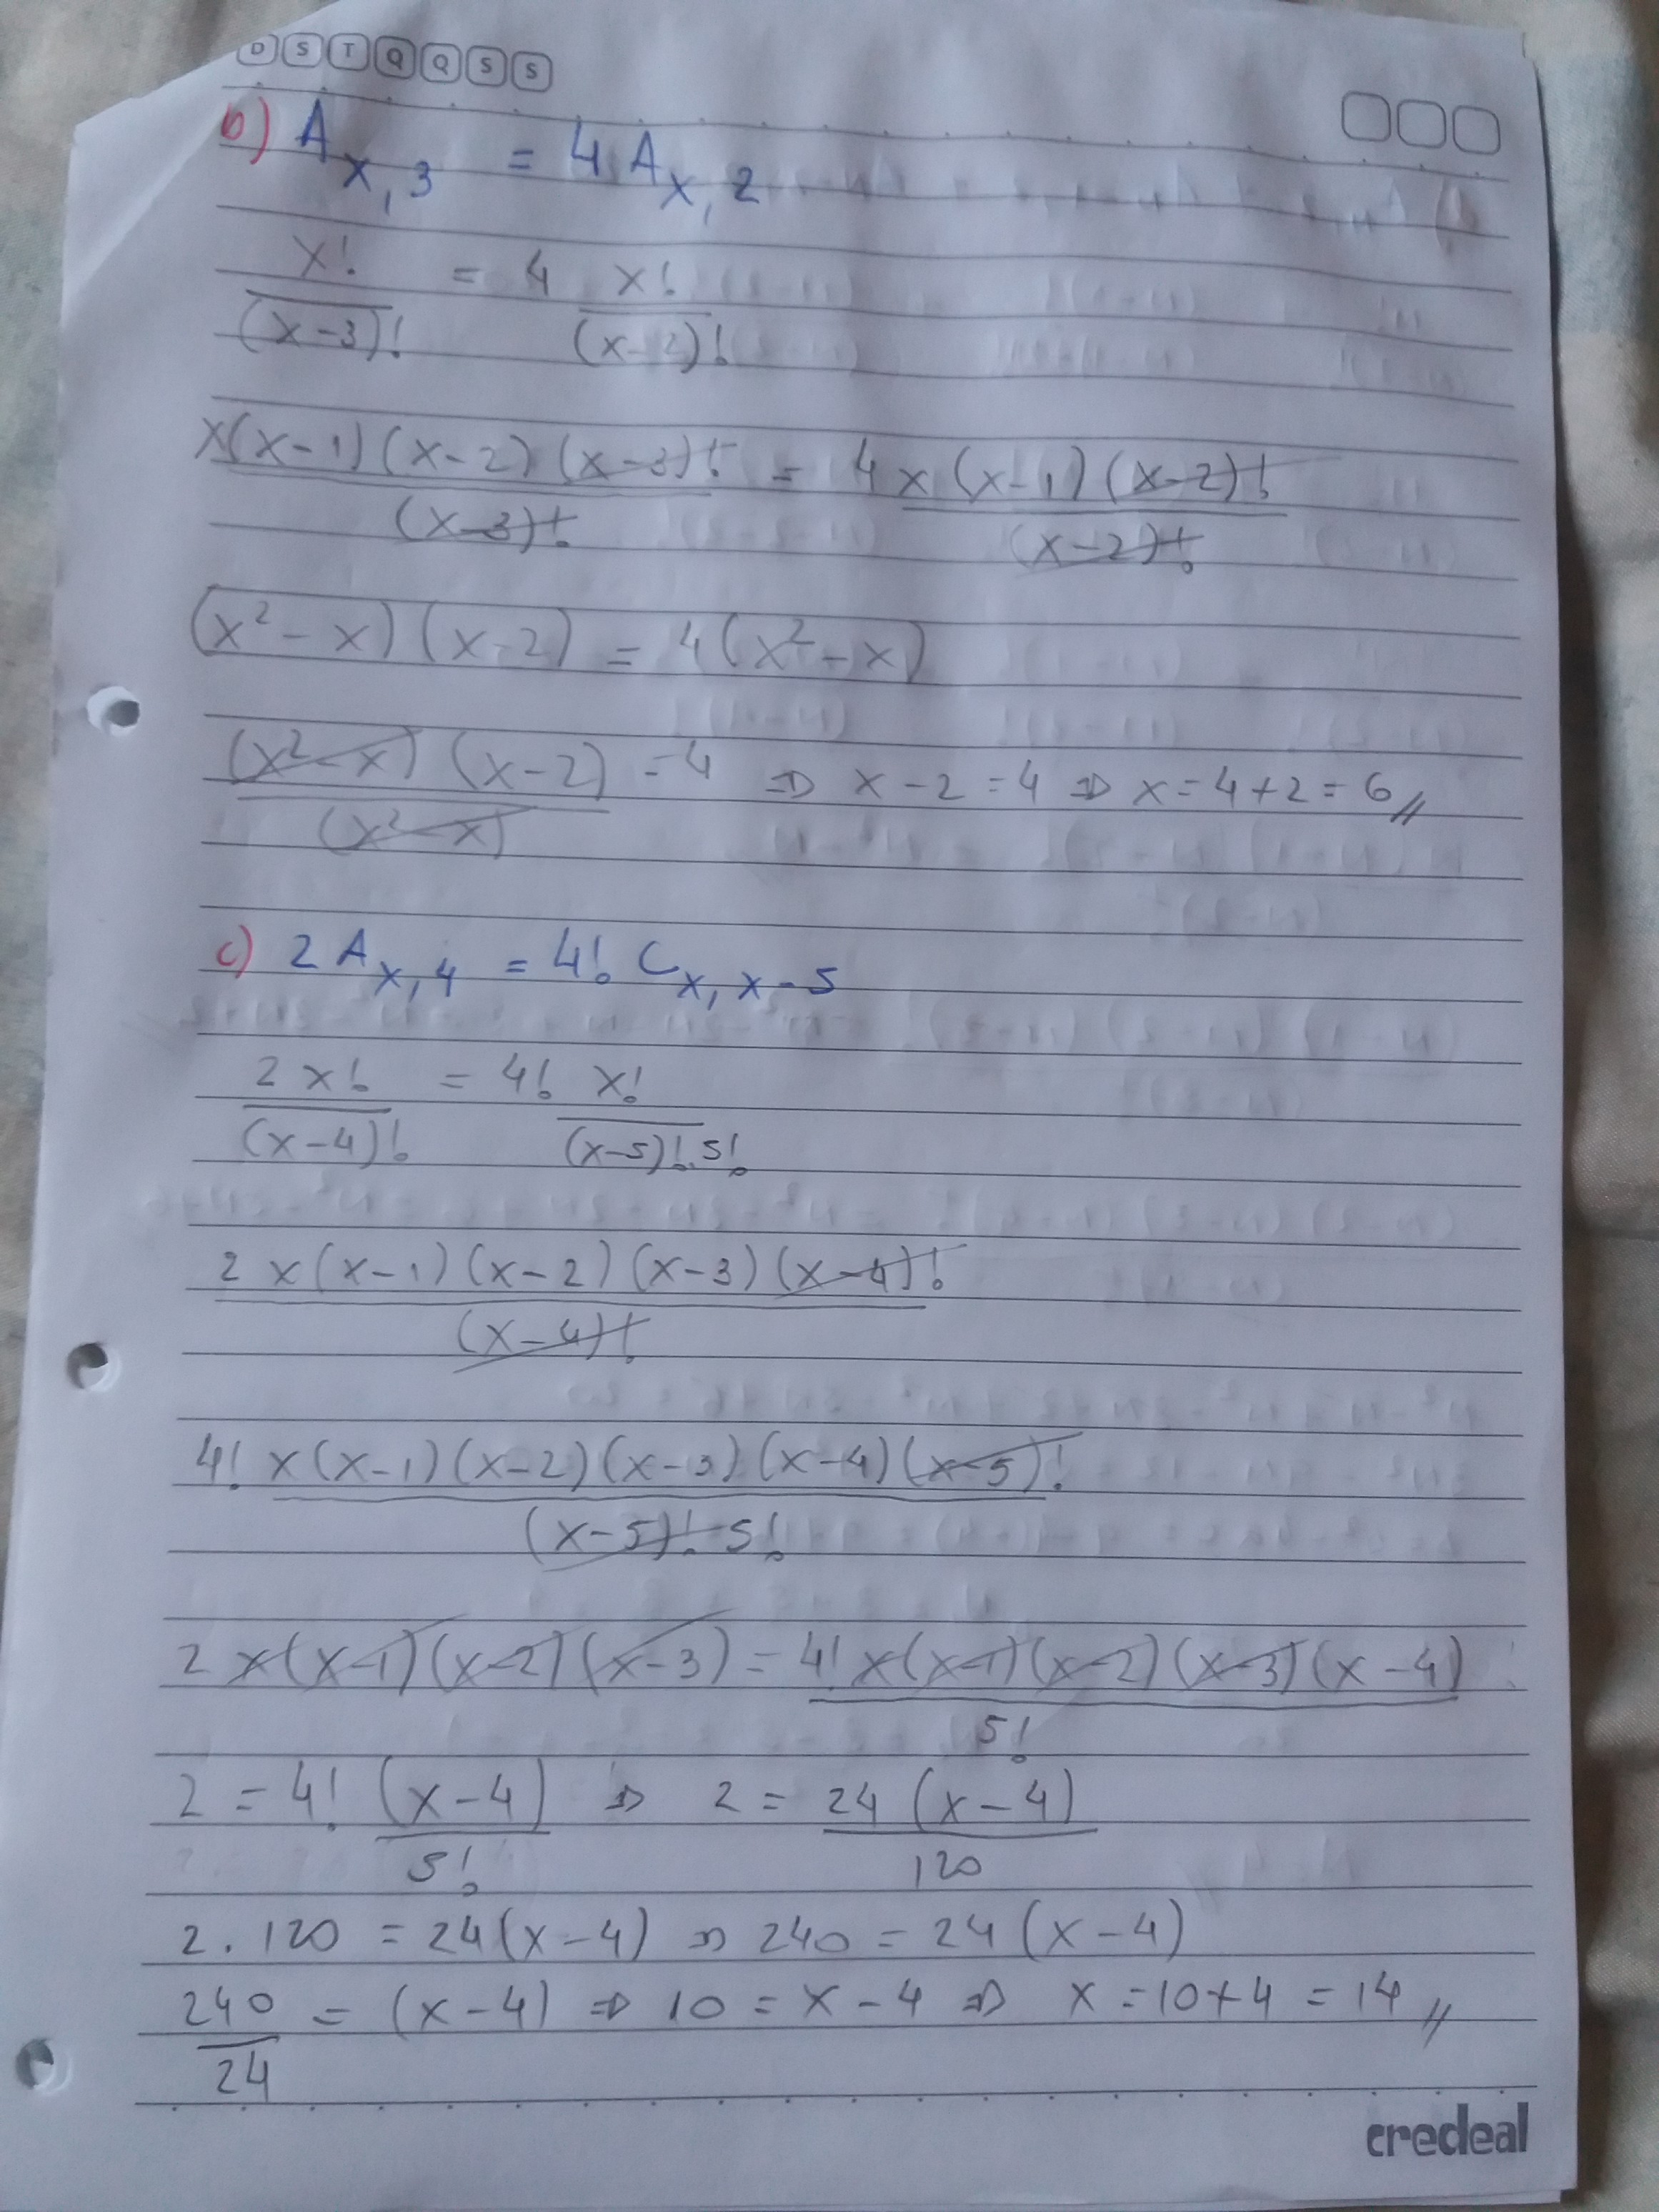 D S T Q Q S S
b) A x, 3 = 4 A x, 2
x! = 4 x!
(x-3)! (x-2)!
x(x-1)(x-2)(x-3)! = 4x(x-1)(x-2)!
(x-3)! (x-2)!
(x²-x)(x-2) = 4(x²-x)
(x²-x)(x-2) = 4 ⇒ x-2=4 ⇒ x=4+2=6//
(x²-x)
c) 2 A x, 4 = 4! C x, x-5
2x! = 4! x!
(x-4)! (x-5)!.5!
2x(x-1)(x-2)(x-3)(x-4)!
(x-4)!
4! x(x-1)(x-2)(x-3)(x-4)(x-5)!
(x-5)! 5!
2x(x-1)(x-2)(x-3) = 4! x(x-1)(x-2)(x-3)(x-4)
5!
2 = 4! (x-4) ⇒ 2 = 24(x-4)
5! 120
2.120 = 24(x-4) ⇒ 240 = 24(x-4)
240 = (x-4) ⇒ 10 = x-4 ⇒ x=10+4=14//
24
credeal